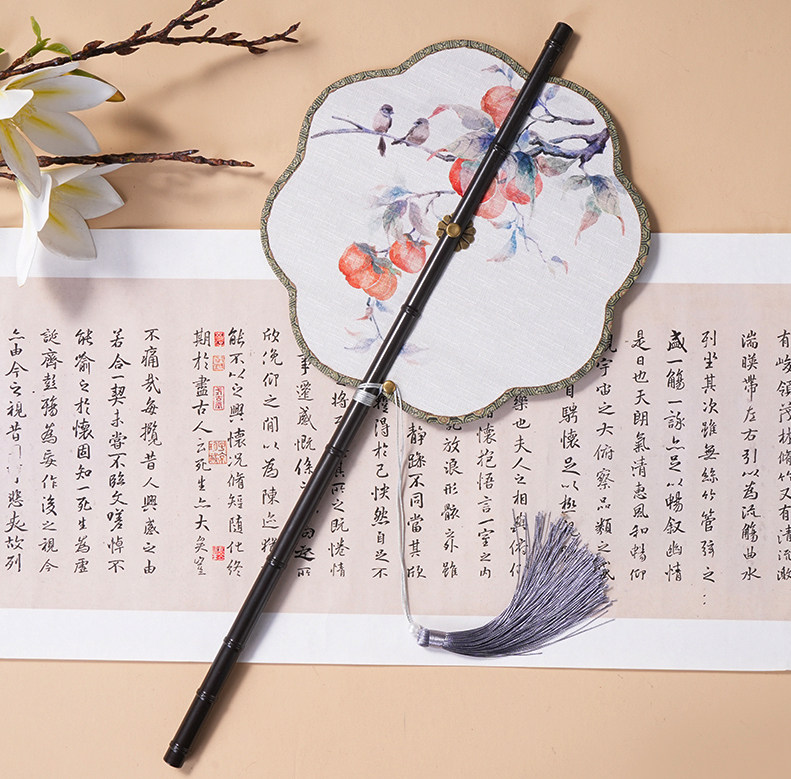 有峻領茂林脩竹又有清流激
湍暎帶左右引以為流觴曲水
列坐其次雖無絲竹管弦之
盛一觴一詠亦足以暢叙幽情
是日也天朗氣清惠風和暢仰
宇宙之大俯察品類之
目騁懷足以極
樂也夫人之相與俯仰
懷抱悟言一室之內
放浪形骸之外雖
靜躁不同當其欣
得於己怏然自足不
將所之既惓情
事遷感慨係之所
欣俛仰之閒以為陳迹猶
能不以之興懷況脩短隨化終
期於盡古人云死生亦大矣豈
不痛哉每攬昔人興感之由
若合一契未嘗不臨文嗟悼不
能喻之於懷固知一死生為虛
誕齊彭殤為妄作後之視今
亦由今之視昔悲夫故列